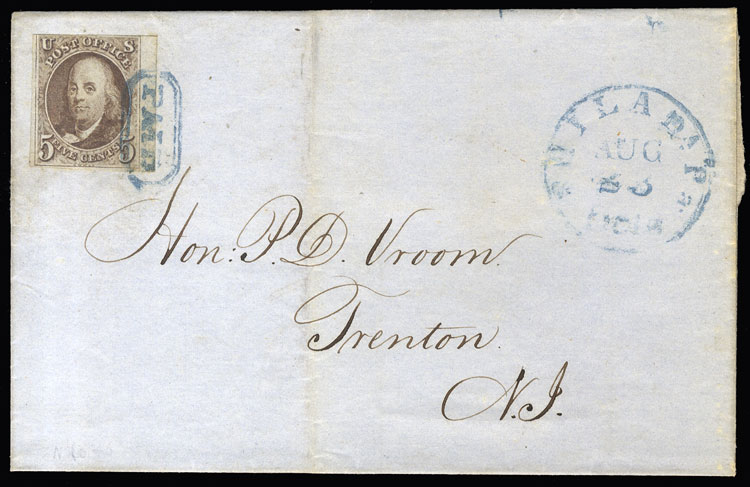 U S
POST OFFICE
5 FIVE CENTS 5
PAID
PHILADA Pa.
AUG
23
Hon: P. D. Vroom.
Trenton.
N.J.